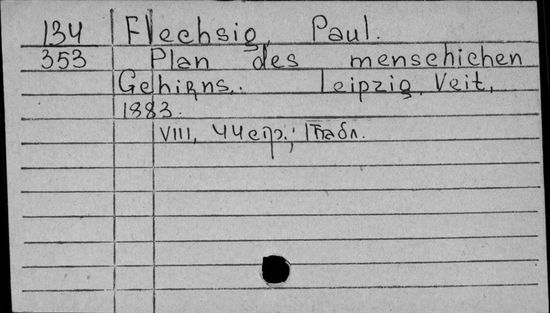 134 Flechsig, Paul.
353 Plan des menschichen
Gehirns,. Leipzig, Veit,
1883.
VIII, 44 стр.; 1 табл.